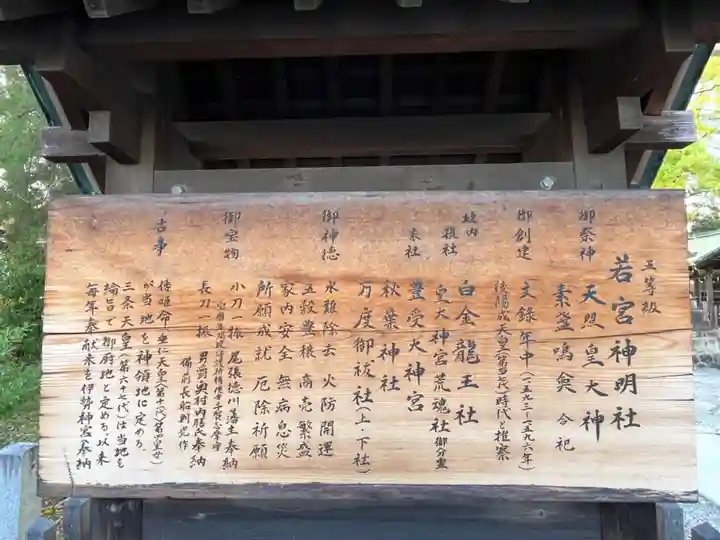 五等級
若宮神明社
御祭神
天照皇大神
素盞鳴尊 合祀
御創建
文録年中(一五九三―一五九六年)
後陽成天皇(第百七代)時代と推察
境内
摂社
白金龍王社
皇大神宮荒魂社 御分霊
末社
豊受大神宮
秋葉神社
万度御祓社(上・下社)
御神徳
水難除去 火防開運
五穀豊穣 商売繁盛
家内安全 無病息災
所願成就 厄除祈願
御宝物
小刀一振 尾張徳川藩主奉納
長刀一振 男爵奥村内膳奉納
備前長船則光作
古事
倭姫命並に天皇(第十一代)第四皇女
が当地を神領地に定める
三条天皇(第六十七代)は当地を
綸旨にて御厨地と定める以来
毎年奉献米を伊勢神宮奉納